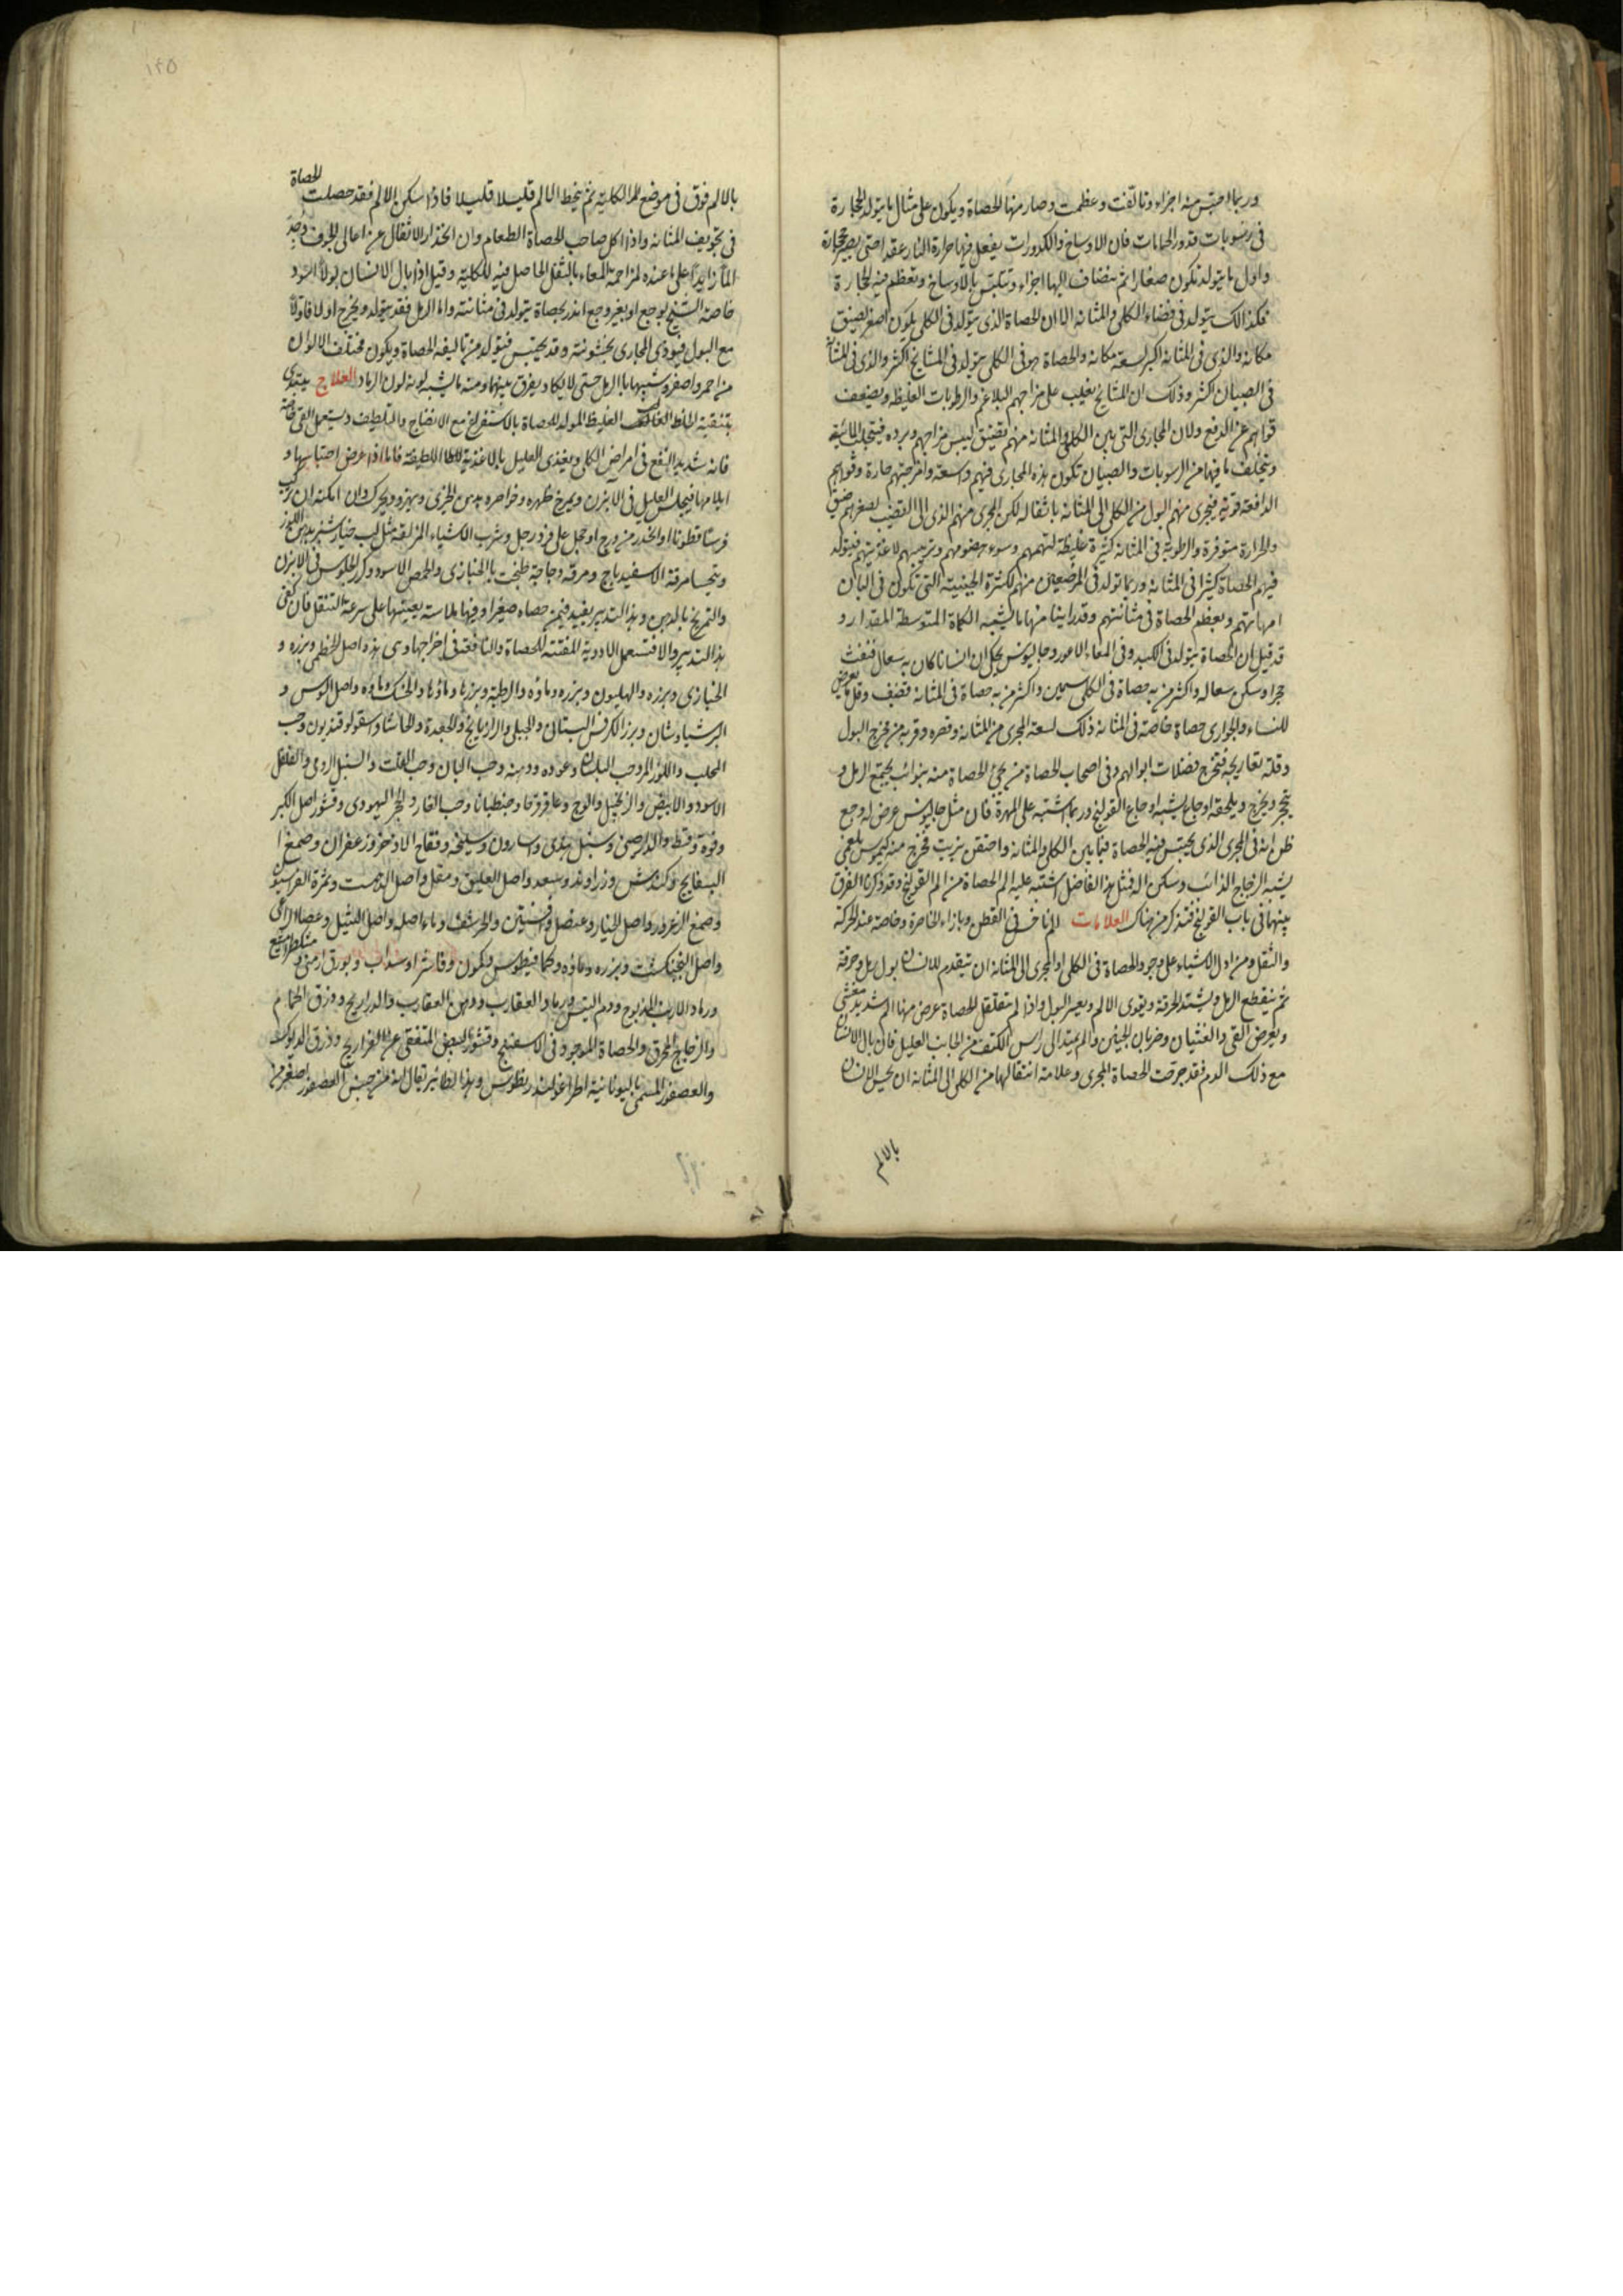 وربما احتبس منه اجزاء وتالّفت وعظمت وصار منها الحصاة ويكون على مثال ما يتولد الحجارة
فى رسوبات قدور الحمامات فان الاوساخ والكدورات يفعل فيها حرارة النار عقدا حتى يصير حجارة
واول ما يتولد تكون صغارا ثم ينضاف اليها اجزاء وتتلبّس بالاوساخ وتعظم فيه الحجارة
فكذالك يتولد فى فضاء الكلى والمثانه الا ان الحصاة الذى يتولد فى الكلى يكون اصغر لضيق
مكانه والذى فى المثانه اكبر لسعة مكانه والحصاة فى الكلى يتولد فى المشايخ اكثر والذى فى المثانة
فى الصبيان اكثر وذلك ان المشايخ يغلب على مزاجهم البلاغم والرطوبات الغليظه ويضعف
قواهم عن الدفع ولان المجارى التى بين الكلى والمثانه منهم تضيق ليبس مزاجهم وبرده فيتحلب المائية
ويتخلف ما فيها من الرسوبات والصبيان تكون هذه المجارى فيهم واسعة وامزجتهم حارة وقواهم
الدافعة قوية فيجرى منهم البول من الكلى الى المثانه باثقاله لكن المجرى منهم الذى الى القضيب لصغرهم ضيق
والحرارة متوفرة والرطوبة فى المثانه كثيرة غليظة لنهمهم وسوء هضومهم وترتيبهم لاغذيتهم فيتولد
فيهم الحصاة كثيرا فى المثانه وربما تولد فى المرضعين منهم لكثرة الجبنية التى تكون فى البان
امهاتهم وبعظم الحصاة فى مثانتهم وقد راينا منها ما يشبه الكماة المتوسطة المقدار و
قد قيل ان الحصاة يتولد فى الكبد وفى المعاء الاعور وجالينوس يحكى ان انسانا كان به سعال فنفث
حجرا وسكن سعاله واكثر من به حصاة فى الكلى سمين واكثر من به حصاة فى المثانه قضف وقل ما يعرض
للنساء والجوارى حصاة خاصة فى المثانه ذلك لسعة المجرى من المثانه وقصره وقربه من مخرج البول
وقلة تعاريجه فتخرج فضلات ابوالهم وفى اصحاب الحصاة من يجئ الحصاة منه بنوائب يجتمع الرمل و
يتحجر ويخرج ويلحقه اوجاع يشبه اوجاع القولنج وربما اشتبه على المهرة فان مثل جالينوس عرض له وجع
ظن انه فى المجرى الذى يحتبس فيه الحصاة فيما بين الكلى والمثانه واحتقن بزيت فخرج منه كيموس بلغمى
يشبه الزجاج الذائب وسكن المه فمثل هذا الفاضل اشتبه عليه الم الحصاة من الم القولنج وقد ذكرنا الفرق
بينهما فى باب القولنج فتذكر من هناك العلامات الم ناخس فى القطن وبازاء الخاصرة وخاصة عند الحركة
والثقل ومن ادل الاشياء على وجود الحصاة فى الكلى او المجرى الى المثانه ان يتقدم للانسان بول رمل وحرقة
ثم ينقطع الرمل ويشتد الحرقة ويقوى الالم ويعسر البول واذا لم يتقلقل الحصاة عرض منها الم شديد مغشى
ويعرض القى والغثيان وضربان الجنبين والم يبتدا الى راس الكتف من الجانب العليل فان بال الانسان
مع ذلك الدم فقد جرقت الحصاة المجرى وعلامة انتقالها من الكلى الى المثانه ان يحس الانسان
بالالم
١٤٥
بالالم فوق فى موضع الكلية ثم ينحط الالم قليلا قليلا فاذا سكن الالم فقد حصلت الحصاة
فى تجويف المثانه واذا اكل صاحب الحصاة الطعام وان انحدار الاثقال عن اعالى الجوف وجد
الما زايدا على ما عنده لمزاحمة المعاء بالثقل الحاصل فيه للكلية وقيل اذا بال الانسان بولا اسود
خاصة الشيخ بوجع او بغير وجع انذر بحصاة يتولد فى مثانته واما الرمل فقد يتولد ويخرج اولا فاولا
مع البول فيؤذى المجارى بخشونته وقد يحتبس فيتولد من تاليفه الحصاة ويكون مختلف الالوان
من احمر واصفر وشبيها بالرمل حتى لا يكاد يفرق بينهما ومنه ما يشبه لونه لون الرماد العلاج يبتدى
بتنقية الخلط الغالب الغليظ المولد للحصاة بالاستفراغ مع الانضاج والتلطيف ويستعمل القى خاصة
فانه شديد النفع فى امراض الكلى ويغذى العليل بالاغذية اللطيفة فاما اذا عرض احتباسها و
ايلامها فيجلس العليل فى الابزن ويمرخ ظهره وخواصره بدهن الخيرى ويهز ويحرك وان امكنه ان يركب
فرسا قطوفا او انحدر من درج او حجل على فرد رجل وشرب الاشياء المزلقة مثل لب خيارشنبر بدهن اللوز
ويتحسا مرقة الاسفيدباج ومرقة دجاجة طبخت بالخبازى والحمص الاسود وكرر الجلوس فى الابزن
والتمريخ بالدهن وهذا التدبير يفيد فيمن حصاه صغيرا وفيها ملاسة يعينها على سرعة التنقل فان كفى
هذا التدبير والا فتستعمل الادوية المفتتة للحصاة والنافعة فى اخراجها وهى هذه اصل الخطمى وبزره و
الخبازى وبزره والهليون وبزره وماؤه والرطبة وبزرها وماؤها والحسك وماؤه واصل السوس و
البرشياوشان وبزر الكرفس البستانى والجبلى والرازيانج والجعدة والحاشا واسقولوقندريون وحب
المحلب واللوز المر وحب البلسان وعوده ودهنه وحب البان وحب القلت والسنبل الرومى والفلفل
الاسود والابيض والزنجبيل والوج وعاقرقرحا وجنطيانا وحب الغار والحجر اليهودى وقشور اصل الكبر
وفوة وقسط والدارصينى وسنبل هندى واسارون وسليخه وفقاح الاذخر وزعفران وصمغ ا
البسفايج وكندس وزراوند وسعد واصل العليق ومقل واصل الدهمست وثمرة الفرسيون
وصمغ الزعرور واصل الخيار وعنصل وافسنتين والحرشف وماء اصله واصل الثيل وعصا الراعى
واصل البنجنكشت وبزره وماؤه وكمافيطوس وكمون وفاشرا وسذاب وبورق ارمنى و
ورماد الارنب المذبوح ودم التيس ورماد العقارب ودهن العقارب والذراريح وذرق الحمام
والزجاج المحرق والحصاة الموجود فى الاسفنج وقشور البيض المتفقى عن الفراريج وذرق الديوك
والعصفور المسمى باليونانية اطراغوليدريطوس وهذا الطائر يقال انه من جنس العصفور اصغر من